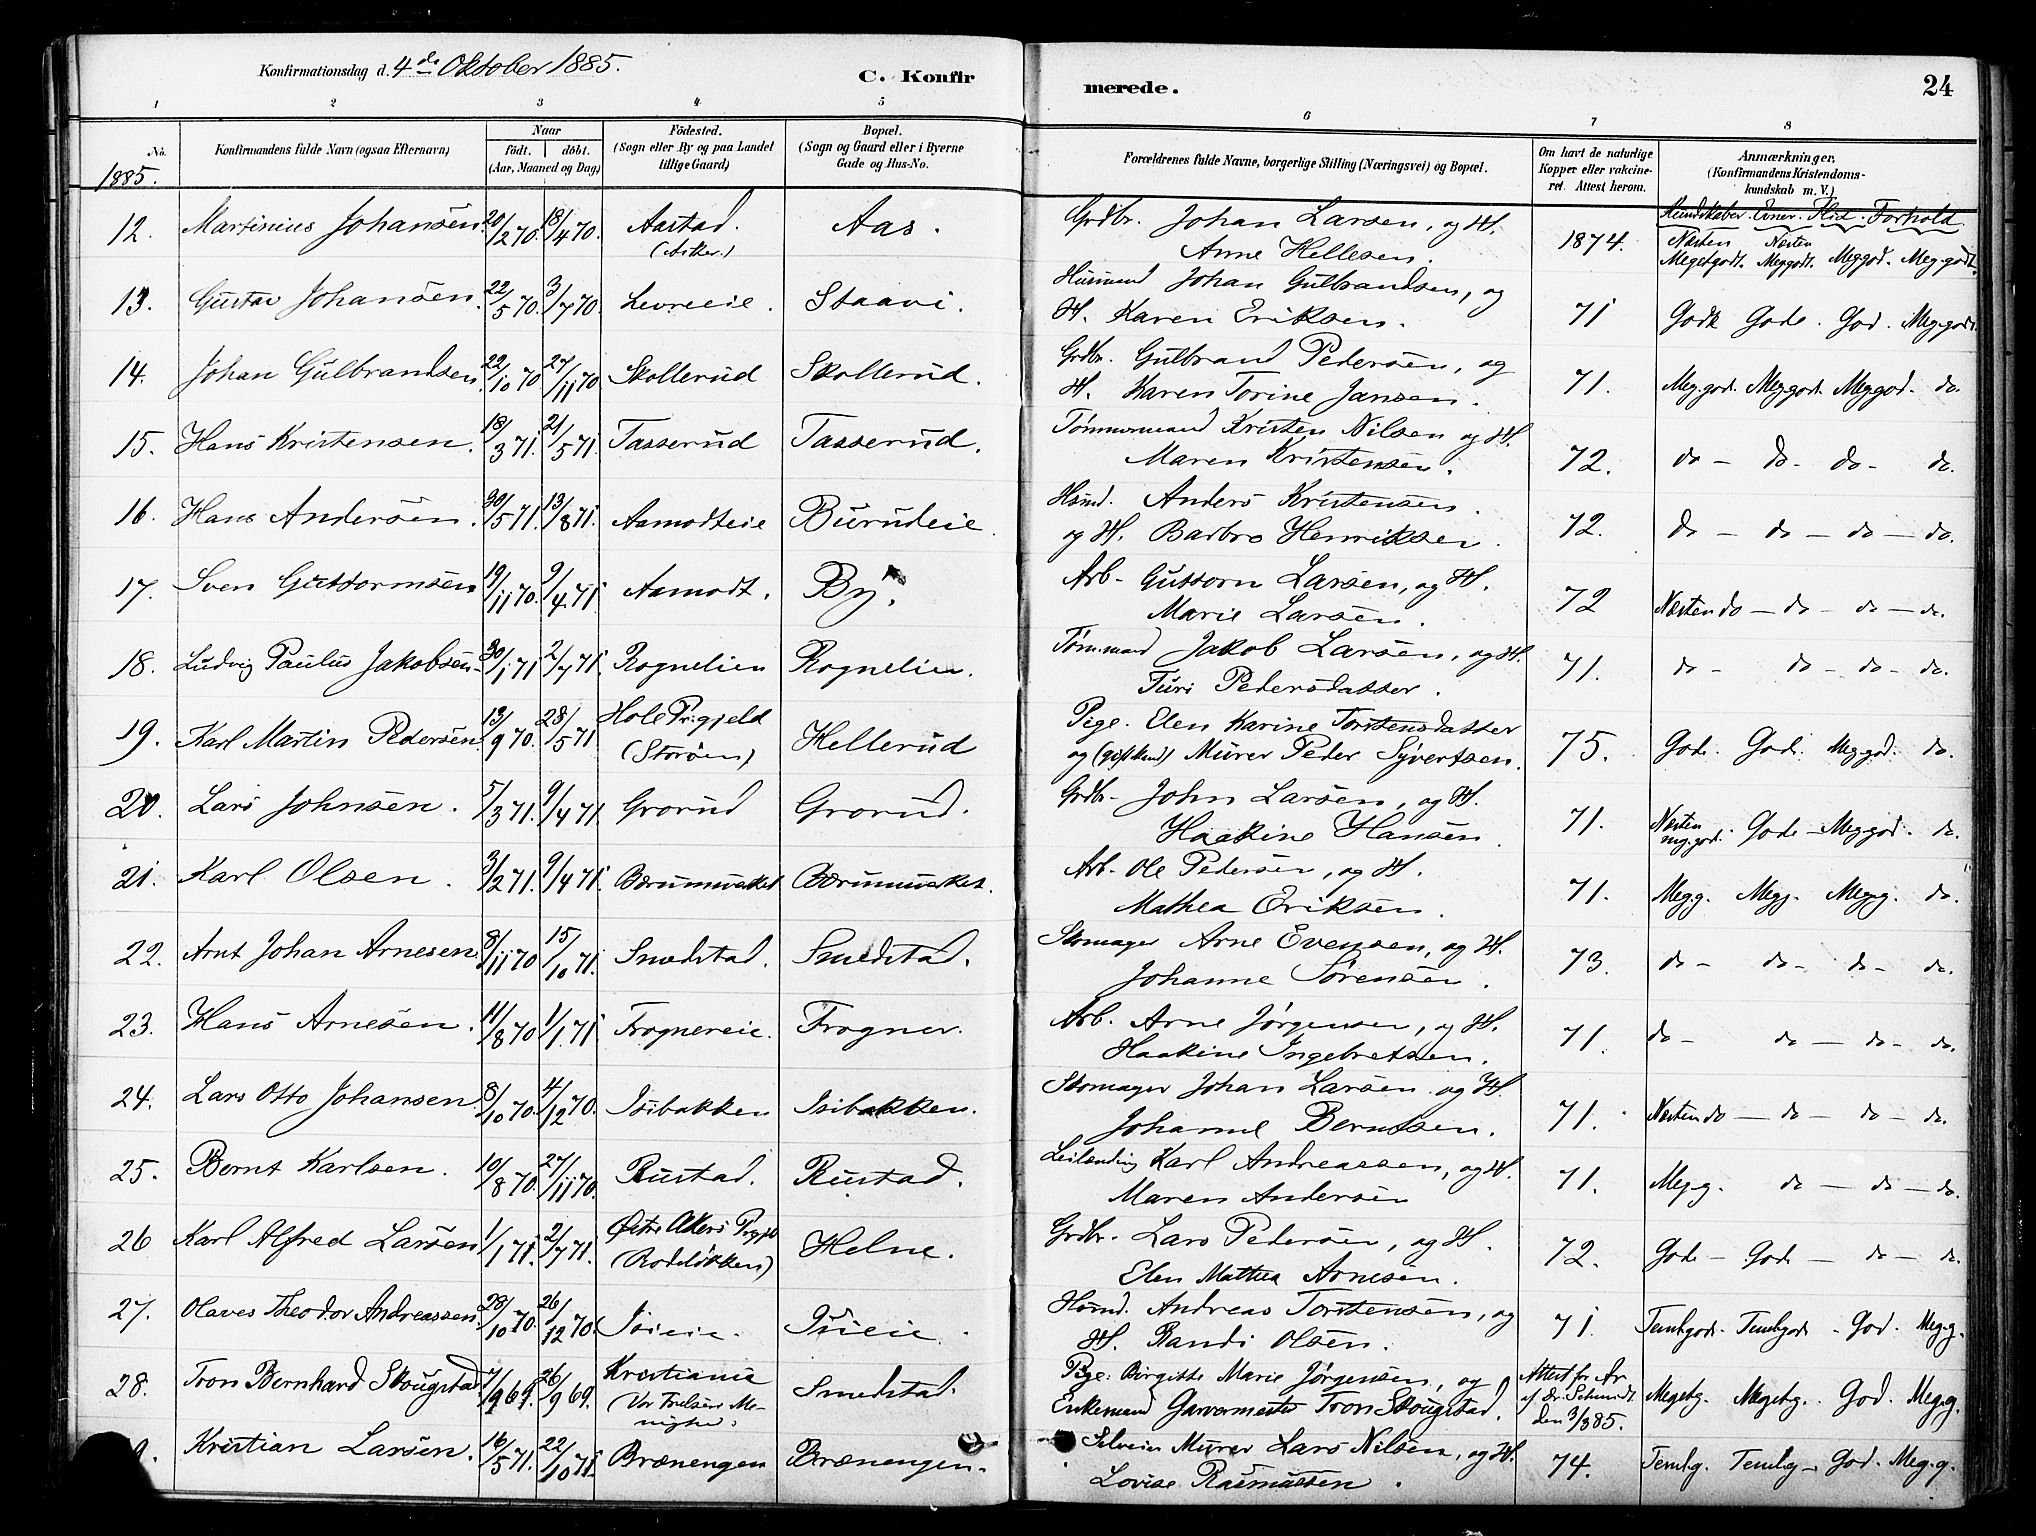 Konfirmationsdag d. 4de Oktober 1885. C. Konfirmerede. 24
1 2 3 4 5 6 7 8
No. Konfirmandens fulde Navn (ogsaa Efternavn) Naar født. døbt. (Aar, Maaned og Dag) Fødested. (Sogn eller By og paa Landet tillige Gaard) Bopæl. (Sogn og Gaard eller i Byerne Gade og Hus-No. Forældrenes fulde Navne, borgerlige Stilling (Næringsvei) og Bopæl. Om havt de naturlige Kopper eller vakcineret. Attest herom. Anmærkninger. (Konfirmandens Kristendomskundskab m. V.)
1885. Kundskaber. Evner. Flid. Forhold
12. Martinius Johansen 20/2 70. 18/4 70. Aastad. (Asker.) Aas. Grdbr. Johan Larsen, og H. 1874. Næsten Megetgodt. Næsten Meg.godt. Meg.god. Meg.godt.
Anne Hellesen.
13. Gustav Johansen. 22/5 70. 3/7 70. Levreeie. Staavi. Husmand Johan Gulbrandsen, og 71 Godk Gode. God. Meg.godt.
H. Karen Eriksen.
14. Johan Gulbrandsen. 22/10 70 27/11 70 Skollerud Skollerud. Grdbr. Gulbrand Pedersen, og 71. Meg.god. Meg.god. Meg.god. do.
H. Karen Torine Jansen.
15. Hans Kristensen. 18/3 71. 21/5 71. Tasserud Tasserud. Tømmermand Kristen Nilsen og H. 72. do - do - do - do.
Maren Kristensen.
16. Hans Andersen. 30/5 71. 13/8 71. Aamodteie Burudeie. Hsmd. Anders Kristensen 72. do - do - do - do.
og H. Barbro Henriksen.
17. Sven Guttormsen 19/11 70. 9/4 71 Aamodt. By. Arb. Guttorm Larsen, og H. 72 Næsten do - do - do - do.
Marie Larsen.
18. Ludvig Paulus Jakobsen 30/1 71 2/7 71. Rognelien Rognelien. Tømmand Jakob Larsen, og H. 71. do - do - do - do.
Turi Pedersdatter.
19. Karl Martin Pedersen 13/9 70. 28/5 71 Hole Pr.gjeld (Storøen) Hellerud Pige. Elen Karine Torstensdatter 75. Gode. Gode. Meg.god. do.
og (gift Mand) Murer Peder Syvertsen.
20. Lars Johnsen. 5/3 71. 9/4 71. Grorud Grorud. Grdbr. John Larsen, og H. 71. Næsten mg.god. Gode - Meg.god. do.
Haakine Hansen.
21. Karl Olsen. 3/2 71. 9/4 71. Bærumsverket Bærumsverket. Arb. Ole Pedersen, og H. 71. Meg.g. Meg.g. Meg.g. do.
Mathea Eriksen.
22. Arnt Johan Arnesen. 8/11 70 15/10 71. Smedstad. Smedstad. Skomager Arne Evensen, og H. 73. do - do - do - do.
Johanne Sørensen.
23. Hans Arnesen. 11/8 70 1/1 71. Frognereie. Frogner. Arb. Arne Jørgensen, og H. 71. do - do - do - do.
Haakine Ingebretsen.
24. Lars Otto Johansen. 8/10 70. 4/12 70. Isibakken Isibakken. Skomager Johan Larsen og H. 71. Næsten do - do - do - do.
Johanne Berntsen.
25. Bernt Karlsen. 10/8 70. 27/11 70. Rustad. Rustad. Leilænding Karl Andreassen, og H. 71. Meg.g. do - do - do.
Maren Andersen
26 Karl Alfred Larsen 1/1 71. 2/7 71. Østre Akers Prgjld (Rodeløkken) Helne. Grdbr. Lars Pedersen, og H. 72. Gode - Gode - do - do.
Elen Mathea Arnesen.
27. Olaves Theodor Andreassen. 28/10 70. 26/12 70. Isieie. Isieie. Hsmd. Andreas Torstensen, og 71. Temgod. Temgod - God. Meg.g.
H. Randi Olsen.
28. Tron Bernhard Skougstad. 7/9 69. 26/9 69. Kristiania (Vor Frelsers Menighed. Smedstad. Pige. Birgitte Marie Jørgensen, og Attest fr. Ar af dr. Schmidt den 3/8 85. Megetg. Megetg. God. Meg.g.
Enkemand Garvermester Tron Skougstad.
9. Kristian Larsen. 16/5 71. 22/10 71. Brænengen Brænengen. Selveier Murer Lars Nilsen, og H. 74. Temlg. Temlg - God. Meg.g.
Lovise Rasmussen.